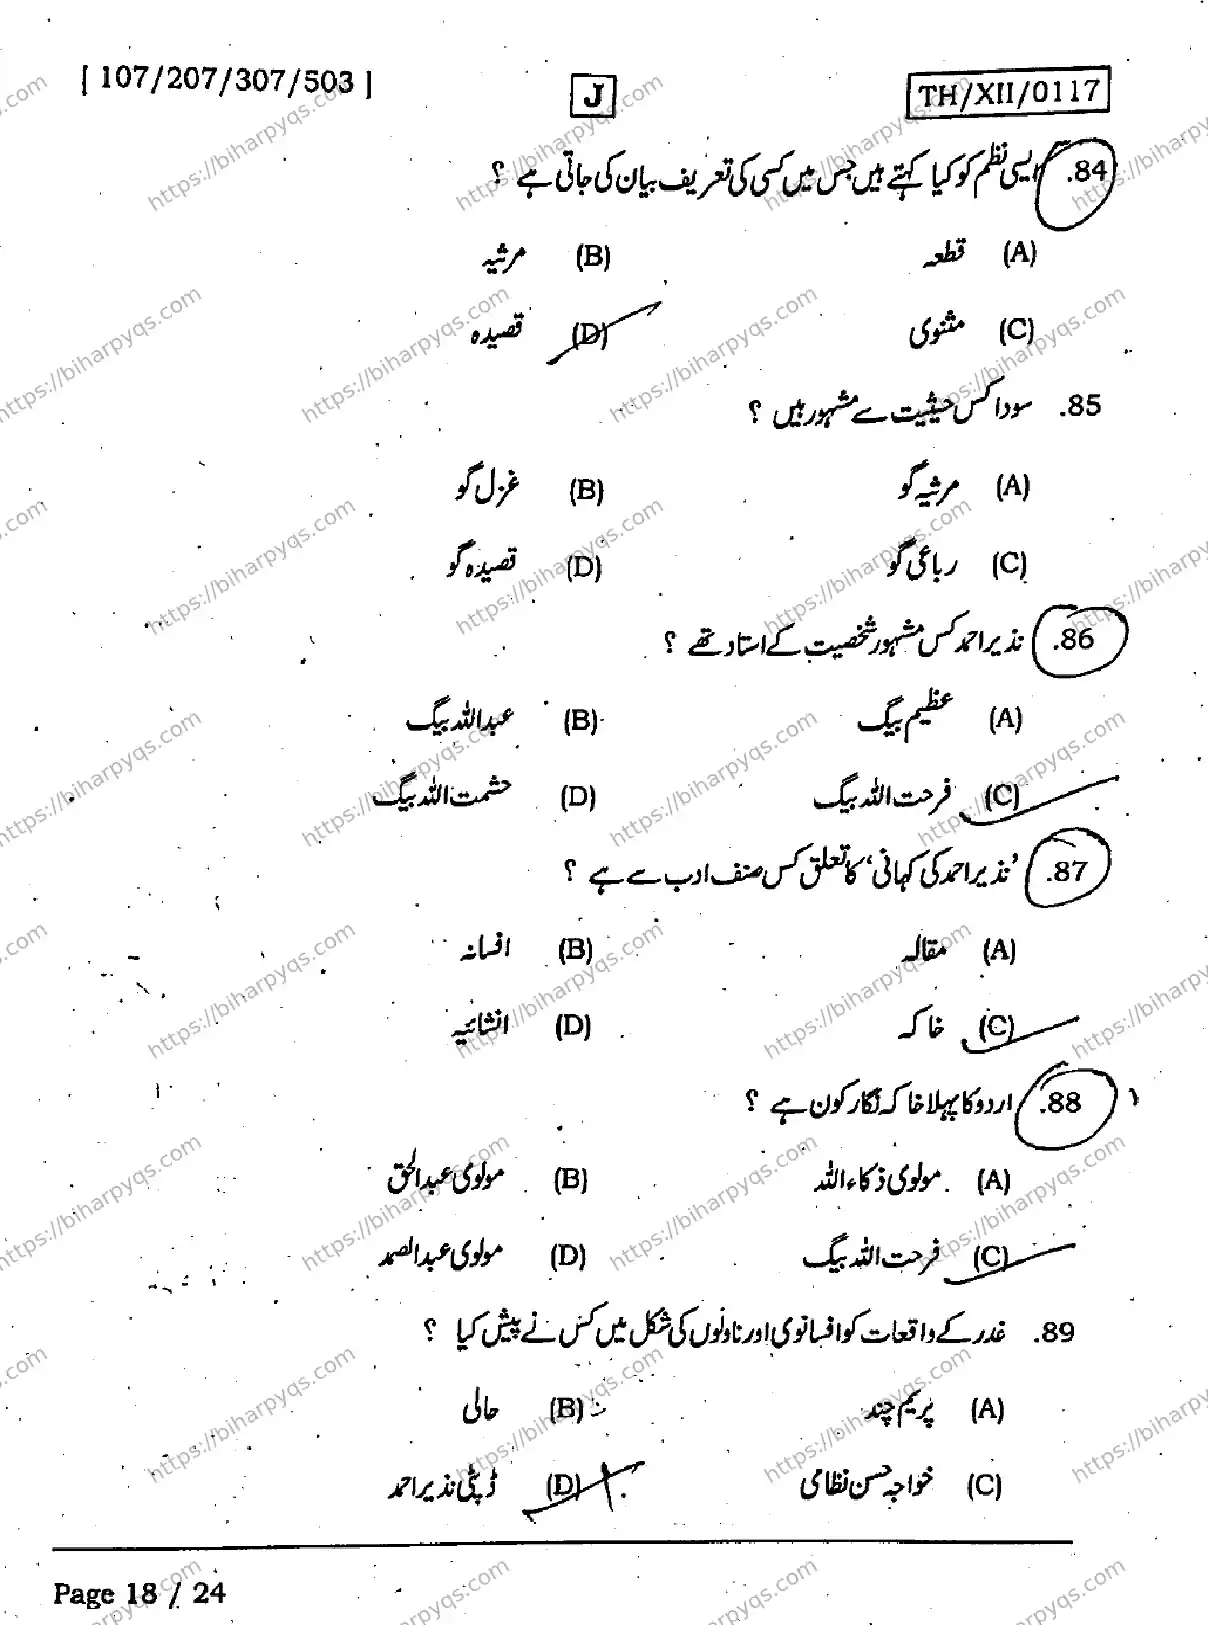 [ 107/207/307/503 ]
J
TH/XII/0117
84. ایسی نظم کو کیا کہتے ہیں جس میں کسی کی تعریف بیان کی جاتی ہے ؟
(A) قطعہ (B) مرثیہ
(C) مثنوی (D) قصیدہ
85. سودا کس حیثیت سے مشہور ہیں ؟
(A) مرثیہ گو (B) غزل گو
(C) رباعی گو (D) قصیدہ گو
86. نذیر احمد کس مشہور شخصیت کے استاد تھے ؟
(A) عظیم بیگ (B) عبداللہ بیگ
(C) فرحت اللہ بیگ (D) حشمت اللہ بیگ
87. ’نذیر احمد کی کہانی‘ کا تعلق کس صنف ادب سے ہے ؟
(A) مقالہ (B) افسانہ
(C) خاکہ (D) انشائیہ
88. اردو کا پہلا خاکہ نگار کون ہے ؟
(A) مولوی ذکاء اللہ (B) مولوی عبدالحق
(C) فرحت اللہ بیگ (D) مولوی عبدالصمد
89. غدر کے واقعات کو افسانوی اور ناولوں کی شکل میں کس نے پیش کیا ؟
(A) پریم چند (B) حالی
(C) خواجہ حسن نظامی (D) ڈپٹی نذیر احمد
Page 18 / 24
https://biharpyqs.com